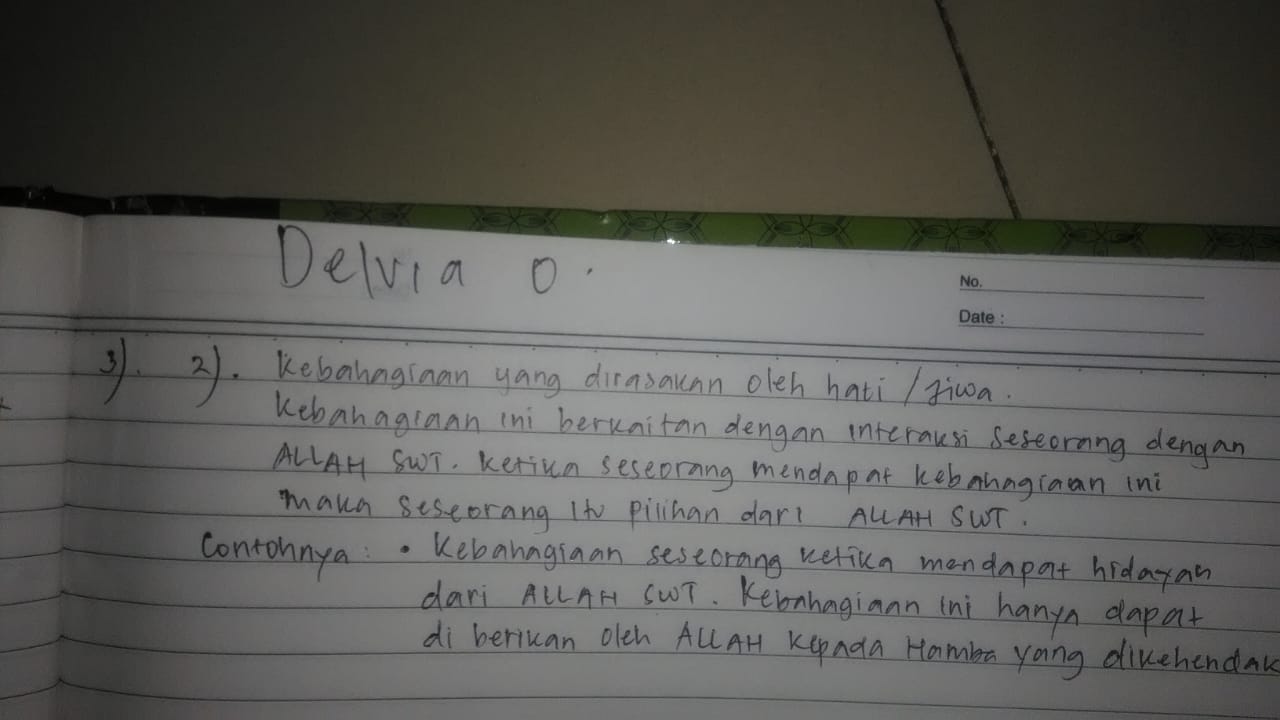 Delvia O.
No.
Date :
3). 2). Kebahagiaan yang dirasakan oleh hati / jiwa.
Kebahagiaan ini berkaitan dengan interaksi seseorang dengan
ALLAH SWT. Ketika seseorang mendapat kebahagiaan ini
maka seseorang itu pilihan dari ALLAH SWT.
Contohnya : • Kebahagiaan seseorang ketika mendapat hidayah
dari ALLAH SWT. Kebahagiaan ini hanya dapat
di berikan oleh ALLAH kepada Hamba yang dikehendak